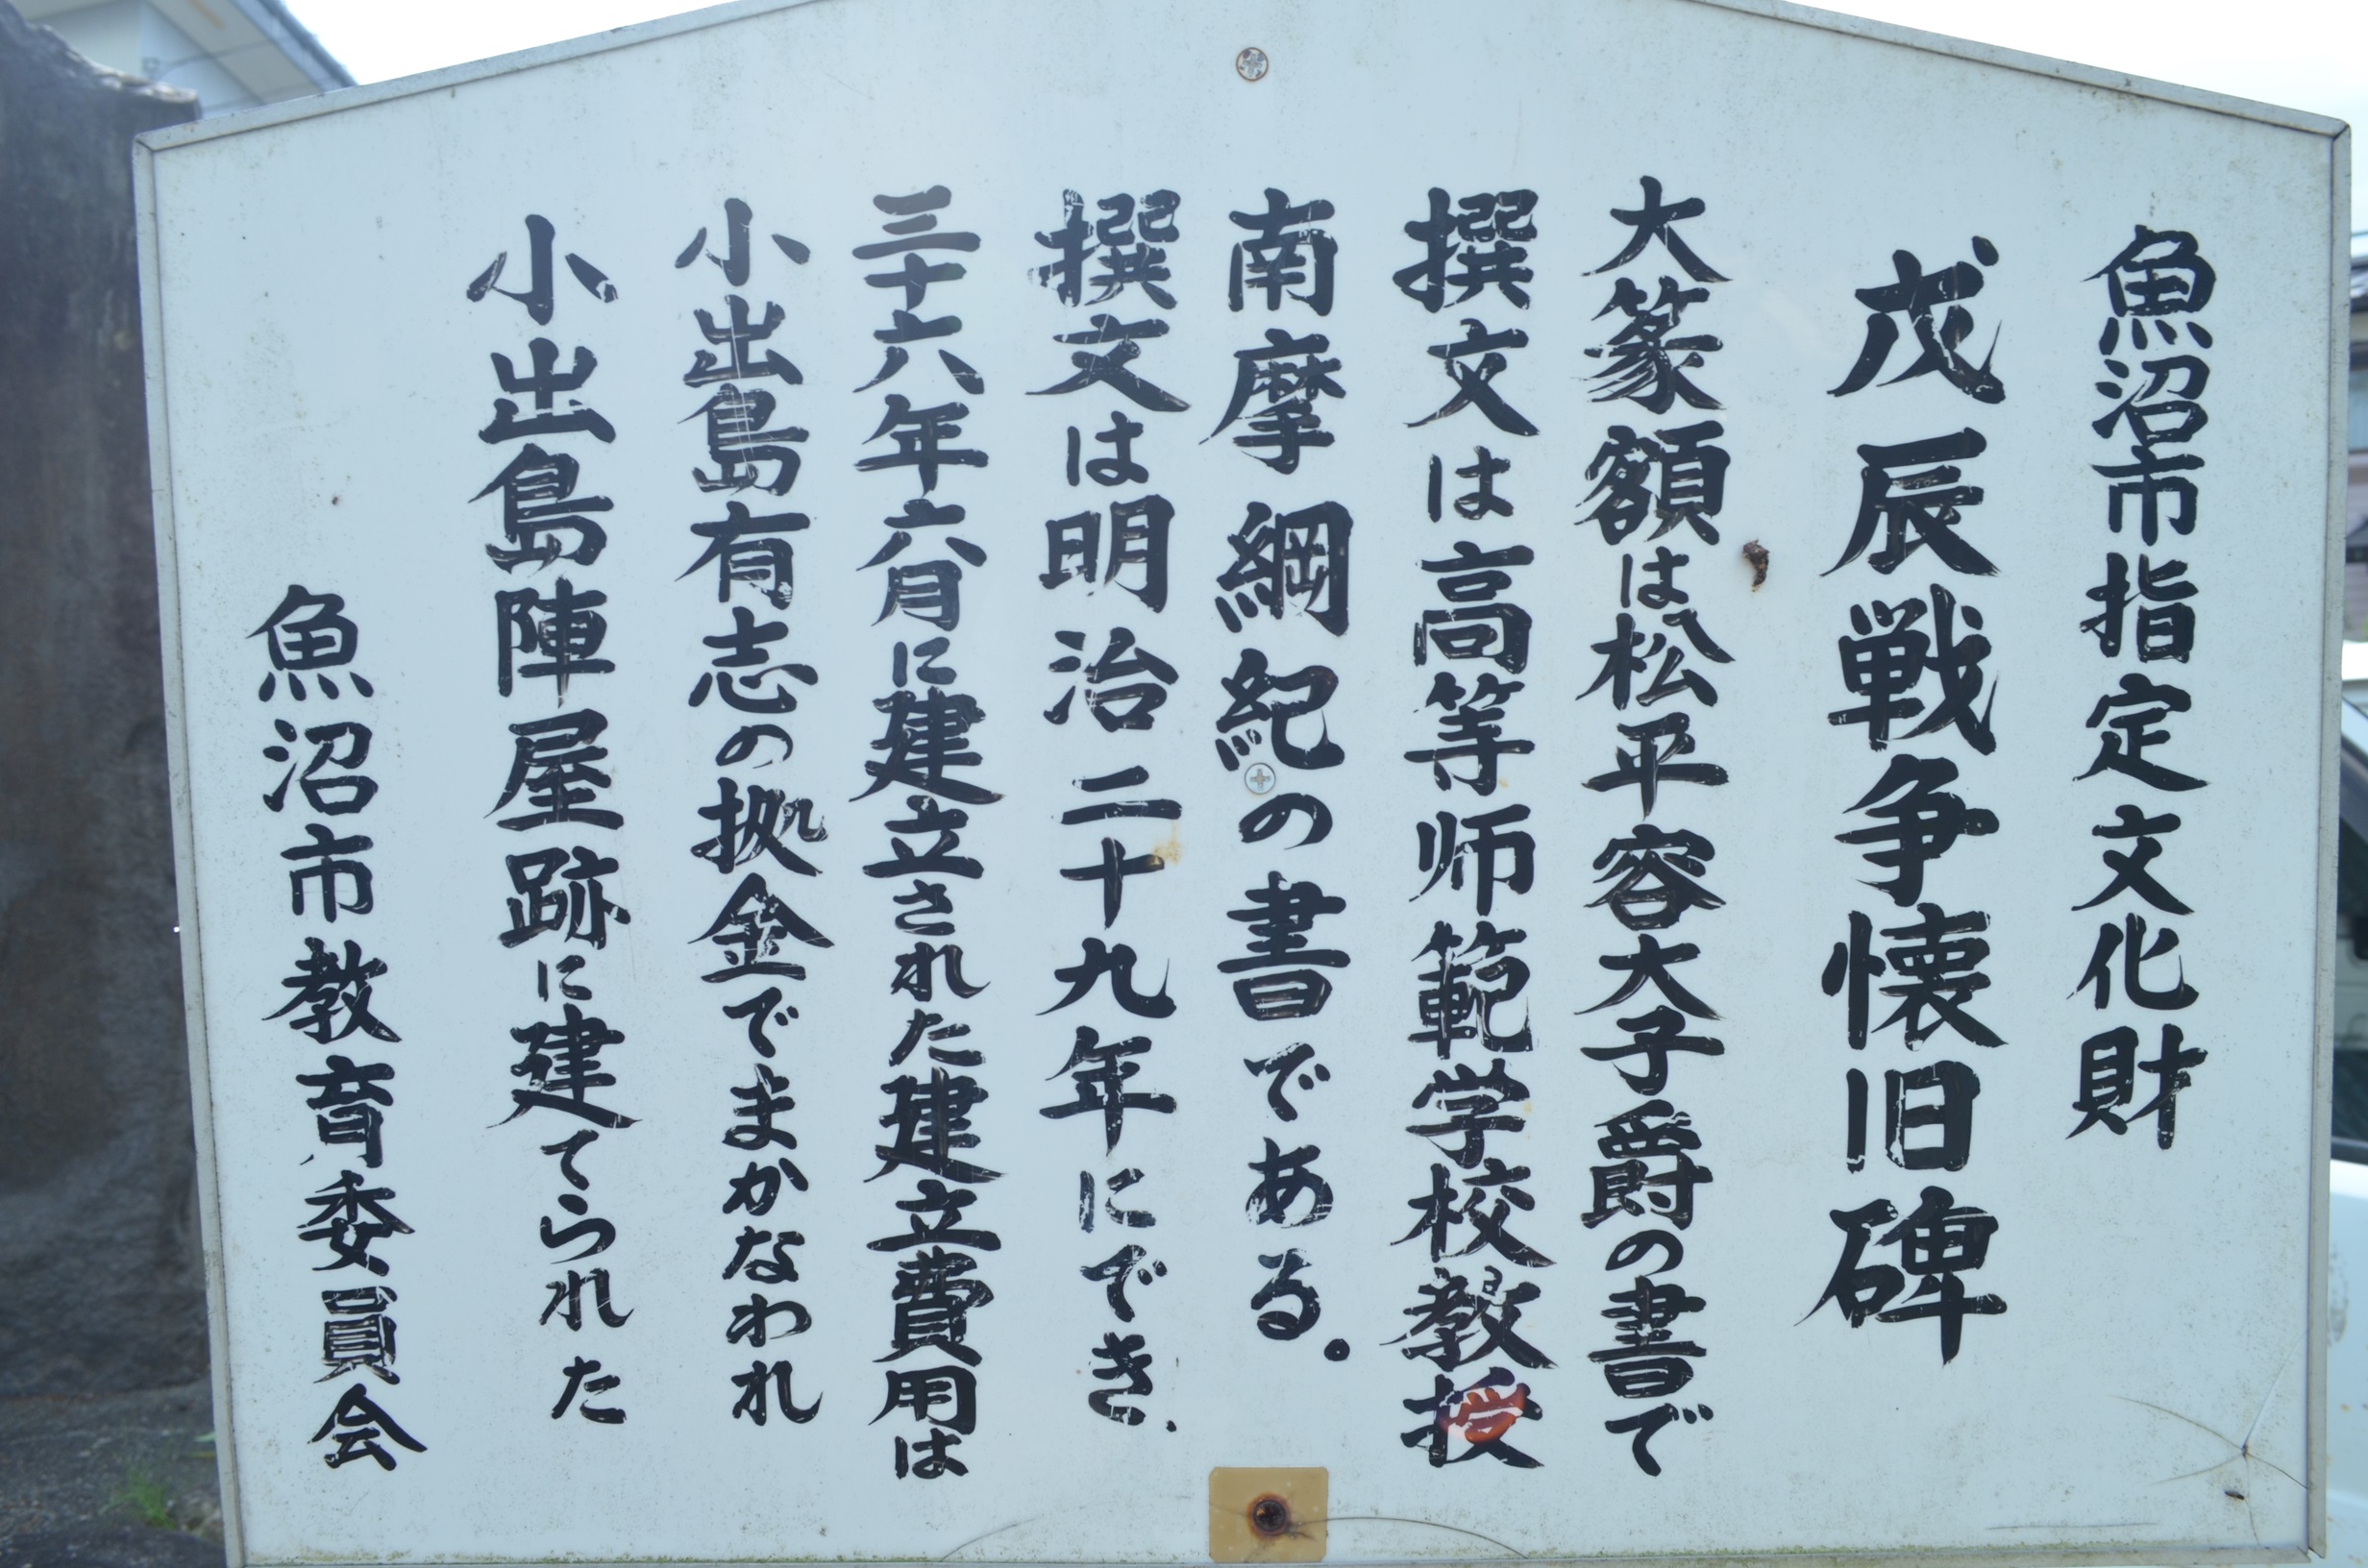 魚沼市指定文化財
戊辰戦争懐旧碑
大篆額は松平容大子爵の書で
撰文は高等师範学校教授
南摩綱紀の書である。
撰文は明治二十九年にでき、
三十六年六月に建立された建立費用は
小出島有志の拠金でまかなわれ
小出島陣屋跡に建てられた
魚沼市教育委員会